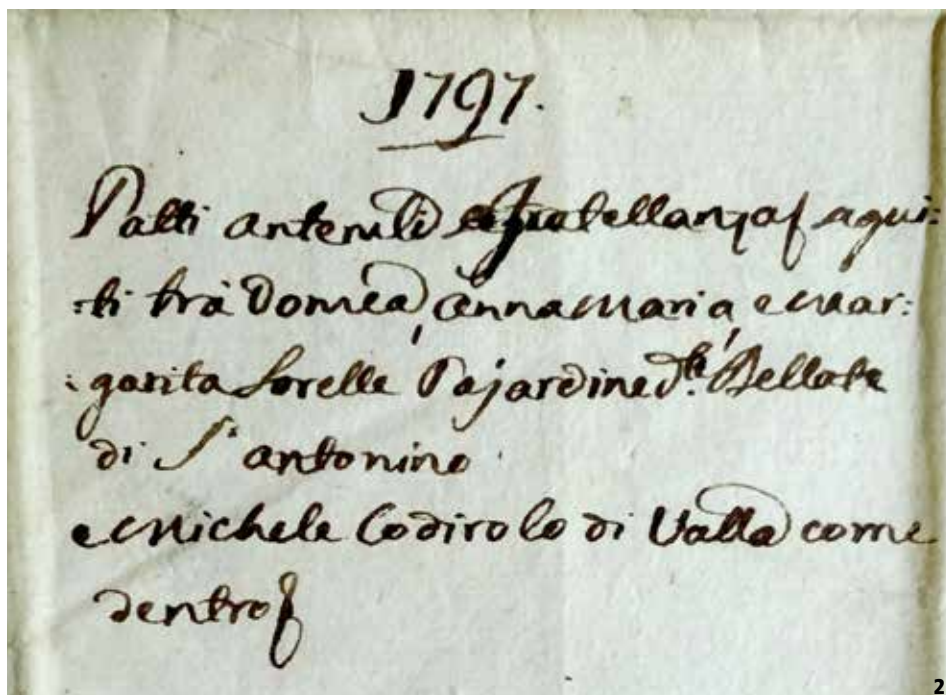 1797.
Patti antenuli e fratellanza sagui:
:ti trà Domca, Anna Maria, e Mar:
:garita Sorelle Pajardine dte. Bellate
di S. antonino
e Michele Codirolo di Valla come
dentro
2